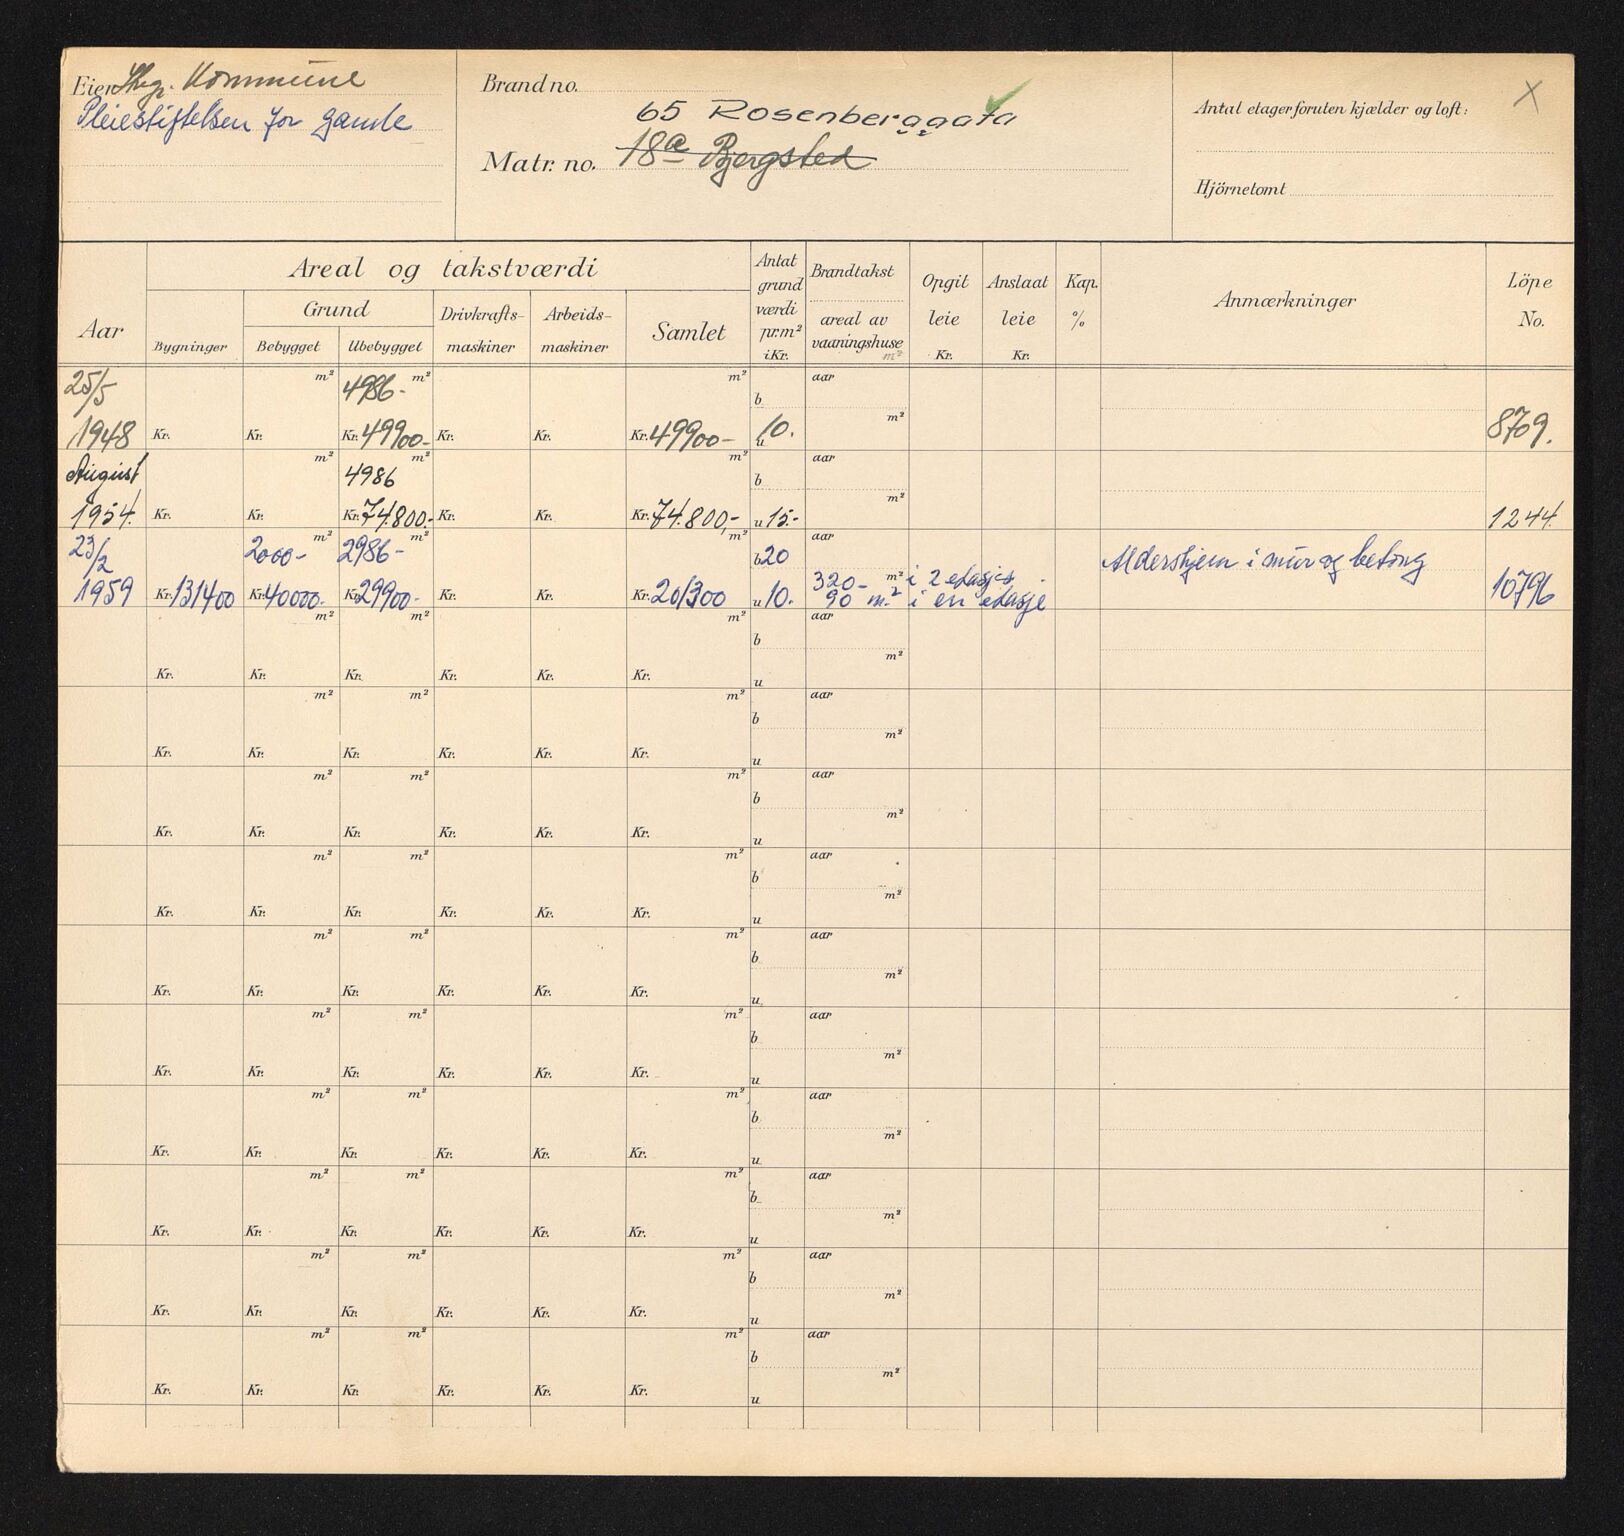 Eier Stvgr. Kommune
Pleiestiftelsen for gamle
Brand no.
65 Rosenberggata
Matr. no. 18a Bjergsted
Antal etager foruten kjælder og loft: X
Hjörnetomt
Aar
Areal og takstværdi
Grund
Bygninger Bebygget Ubebygget
Drivkrafts-
maskiner
Arbeids-
maskiner
Samlet
Antat
grund
værdi
pr. m²
i Kr.
Brandtakst
areal av
vaaningshuse
m²
Opgit
leie
Kr.
Anslaat
leie
Kr.
Kap.
%
Anmærkninger
Löpe
No.
25/5 m² 4986- m² m² b aar
m²
1948 Kr. Kr. Kr. 49900- Kr. Kr. Kr. 49900- u 10. 8709.
August m² 4986 m² m² b aar
m²
1954. Kr. Kr. Kr. 74.800.- Kr. Kr. Kr. 74.800,- u 15.- 1244.
23/2 2000- m² 2986- m² m² b 20 aar Aldershjem i mur og betong
320- m² i 2 etasjes
1959 Kr. 131400 Kr. 40000.- Kr. 29900- Kr. Kr. Kr. 201300 u 10. 90 m.² i en etasje 10796
m² m² m² b aar
m²
Kr. Kr. Kr. Kr. Kr. Kr. u
m² m² m² b aar
m²
Kr. Kr. Kr. Kr. Kr. Kr. u
m² m² m² b aar
m²
Kr. Kr. Kr. Kr. Kr. Kr. u
m² m² m² b aar
m²
Kr. Kr. Kr. Kr. Kr. Kr. u
m² m² m² b aar
m²
Kr. Kr. Kr. Kr. Kr. Kr. u
m² m² m² b aar
m²
Kr. Kr. Kr. Kr. Kr. Kr. u
m² m² m² b aar
m²
Kr. Kr. Kr. Kr. Kr. Kr. u
m² m² m² b aar
m²
Kr. Kr. Kr. Kr. Kr. Kr. u
m² m² m² b aar
m²
Kr. Kr. Kr. Kr. Kr. Kr. u
m² m² m² b aar
m²
Kr. Kr. Kr. Kr. Kr. Kr. u